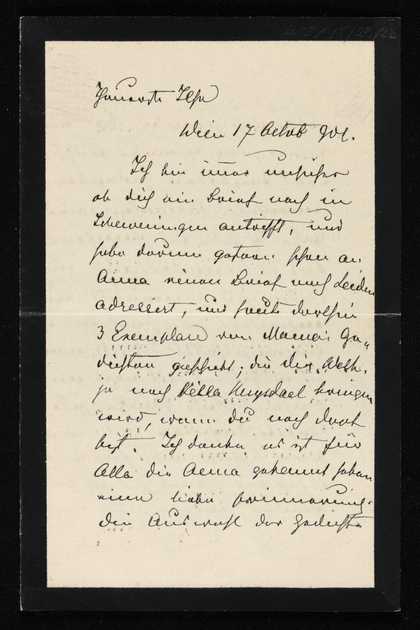 Theuerste Ilse
Wien 17 Octob 901.
Ich bin zwar unsicher
ob dich ein Brief noch in
Scheveningen antrifft, und
habe darum gestern schon an
Anna einen Brief nach Leiden
adressiert, und heute dorthin
3 Exemplare von Mama's Ge-
dichten geschickt; die dir
ja noch Ruysdael bringen
wird, wenn du noch dort
bist. Ich denke es ist für
Alle die gekannt haben
eine liebe Erinnerung.
die Auswahl der Gedichte